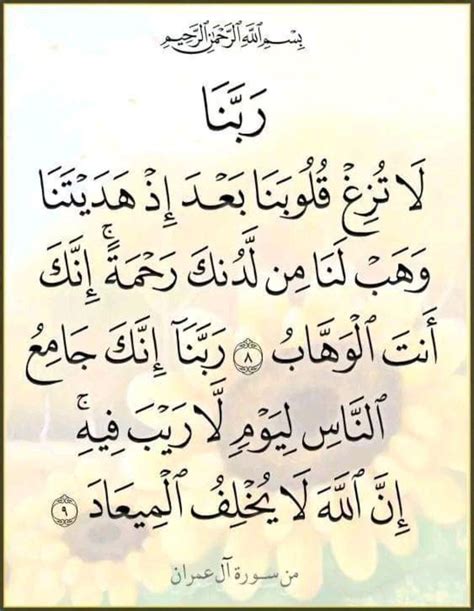 بِسْمِ ٱللَّهِ ٱلرَّحْمَٰنِ ٱلرَّحِيمِ
رَبَّنَا
لَا تُزِغْ قُلُوبَنَا بَعْدَ إِذْ هَدَيْتَنَا
وَهَبْ لَنَا مِن لَّدُنكَ رَحْمَةً ۚ إِنَّكَ
أَنتَ ٱلْوَهَّابُ ٨ رَبَّنَآ إِنَّكَ جَامِعُ
ٱلنَّاسِ لِيَوْمٍ لَّا رَيْبَ فِيهِ ۚ
إِنَّ ٱللَّهَ لَا يُخْلِفُ ٱلْمِيعَادَ ٩
من سورة آل عمران